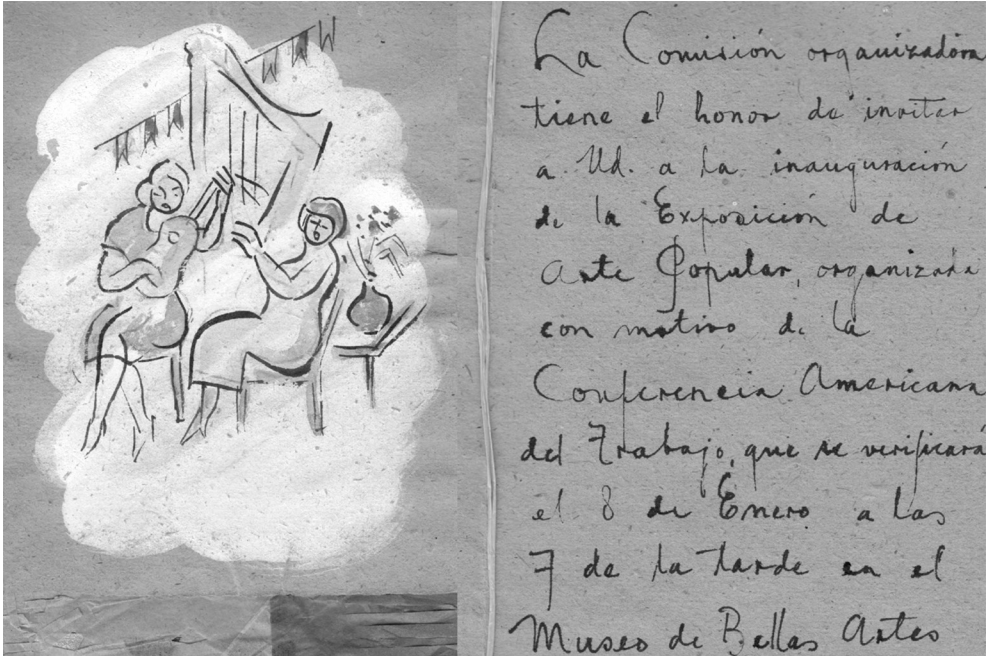 La Comisión organizadora
tiene el honor de invitar
a Ud. a la inauguración
de la Exposición de
Arte Popular, organizada
con motivo de la
Conferencia Americana
del Trabajo, que se verificará
el 8 de Enero a las
7 de la tarde en el
Museo de Bellas Artes